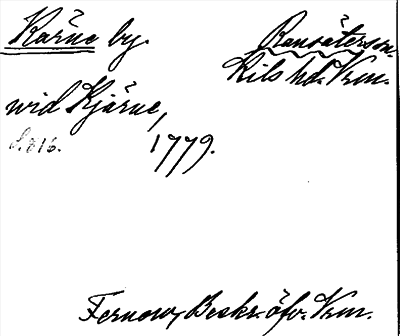 Kärne by.
Ransäterssn.
Kils hd. Vrm.
wid Kjärne,
S. 816. 1779.
Fernow, Beskr. öfv. Vrm.